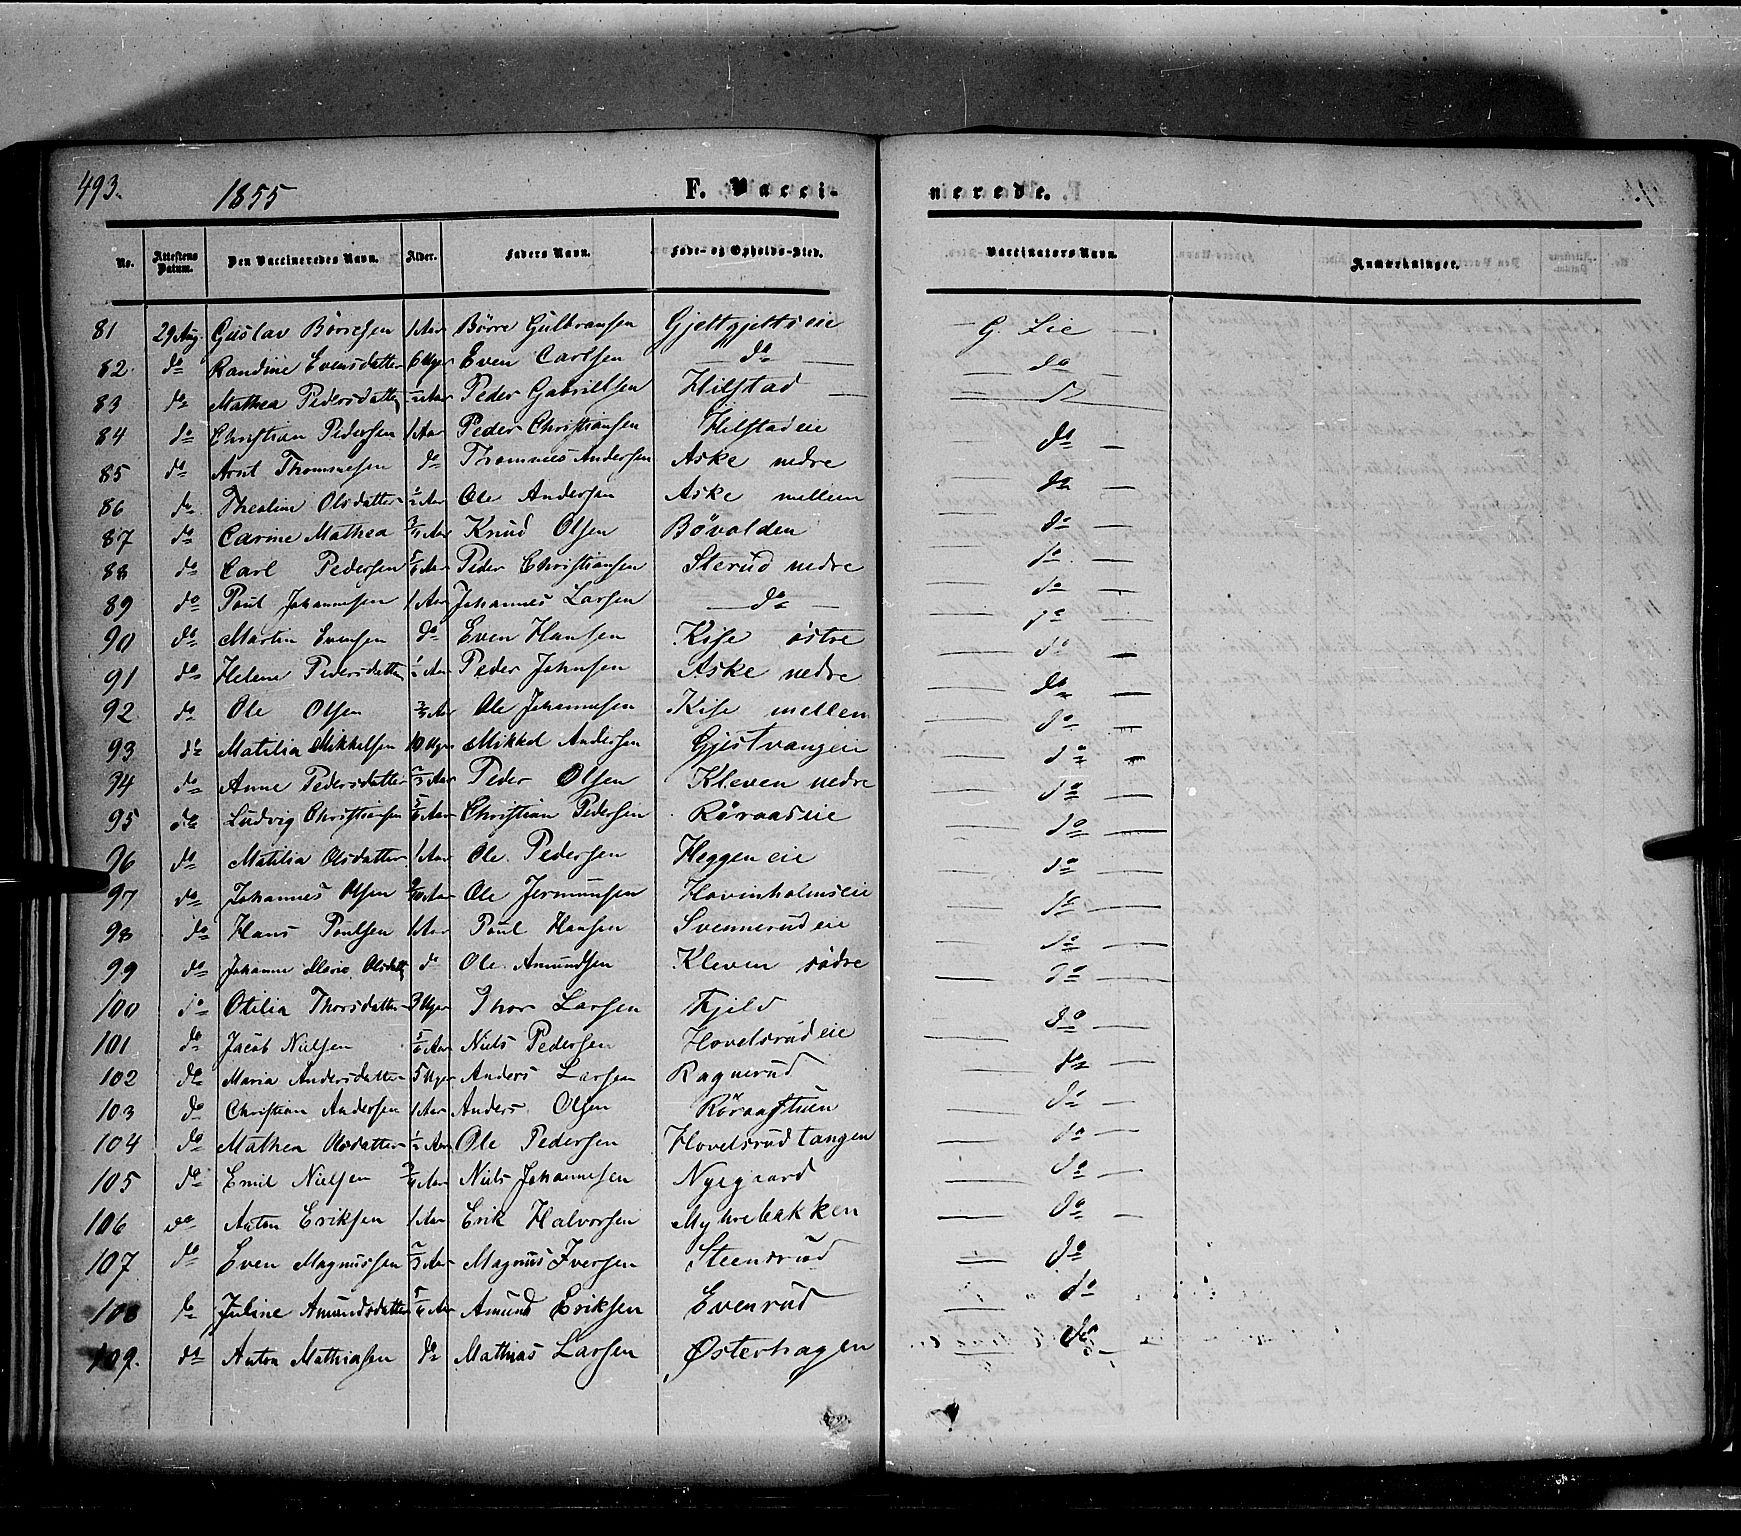 493. 1855 F. Vacci- nerede.
No. Attestens Datum. Den Vaccineredes Navn. Alder. Faders Navn. Føde- og Opholds-Sted. Vaccinators Navn. Anmærkninger.
81 29 Aug. Gustav Börresen 1 Aar Börre Gulbransen Gjettgjettseie — G. Lie —
82. do Randine Evensdatter 6 Uger Even Carlsen — do — — do —
83 do Mathea Pedersdatter 1/2 Aar Peder Gabrielsen Hilstad — — do —
84 do Christian Pedersen 1 Aar Peder Christiansen Hilstadeie — do —
85 do Arnt Thommesen do Thommes Andersen Aske nedre — do —
86 do Thealine Olsdatter 1/2 Aar Ole Andersen Aske mellem — do —
87 do Carine Mathea 3/4 Aar Knud Olsen Bövolden — do —
88 do Carl Pedersen 5/6 Aar Peder Christiansen Sterud nedre — do —
89 do Paul Johannesen 1 Aar Johannes Larsen — do — — do —
90 do Martin Evensen do Even Hansen Kise östre — do —
91 do Helene Pedersdatter 1/2 Aar Peder Johnsen Aske nedre — do —
92 do Ole Olsen 2/3 Aar Ole Johannesen Kise mellem — do —
93 do Matilia Mikkelsen 10 Uger Mikkel Andersen Gjestvangeie — do —
94 do Anne Pedersdatter 2/3 Aar Peder Olsen Kleven nedre — do —
95 do Ludvig Christiansen 5/6 Aar Christian Pedersen Röraaseie — do —
96 do Matilia Olsdatter 1 Aar Ole Pedersen Heggeneie — do —
97 do Johannes Olsen 9/10 Aar Ole Jermunsen Hovinholmseie — do —
98 do Hans Poulsen 1 Aar Poul Hansen Svennerudeie — do —
99 do Johanne Marie Olsdatt do Ole Amundsen Kleven södre — do —
100 do Otilia Thorsdatter 3 Uger Thor Larsen Fjeld — do —
101 do Jacob Nielsen 5/6 Aar Niels Pedersen Hovelsrudeie — do —
102 do Maria Andersdatter 5 Uger Anders Larsen Ragnerud — do —
103 do Christian Andersen 1 Aar Anders Olsen Röraastuen — do —
104 do Mathea Olsdatter 1/2 Aar Ole Pedersen Hovelsrudtangen — do —
105 do Emil Nielsen 3/4 Aar Niels Johannesen Nyegaard — do —
106 do Anton Eriksen 1 Aar Erik Halvorsen Myhrebakken — do —
107 do Even Magnussen 2/3 Aar Magnus Iversen Steensrud — do
108 do Juline Amundsdatter Aar Amund Eriksen Evenrud — do
109. do Anton Mathiasen do Mathias Larsen Østerhagen — do —